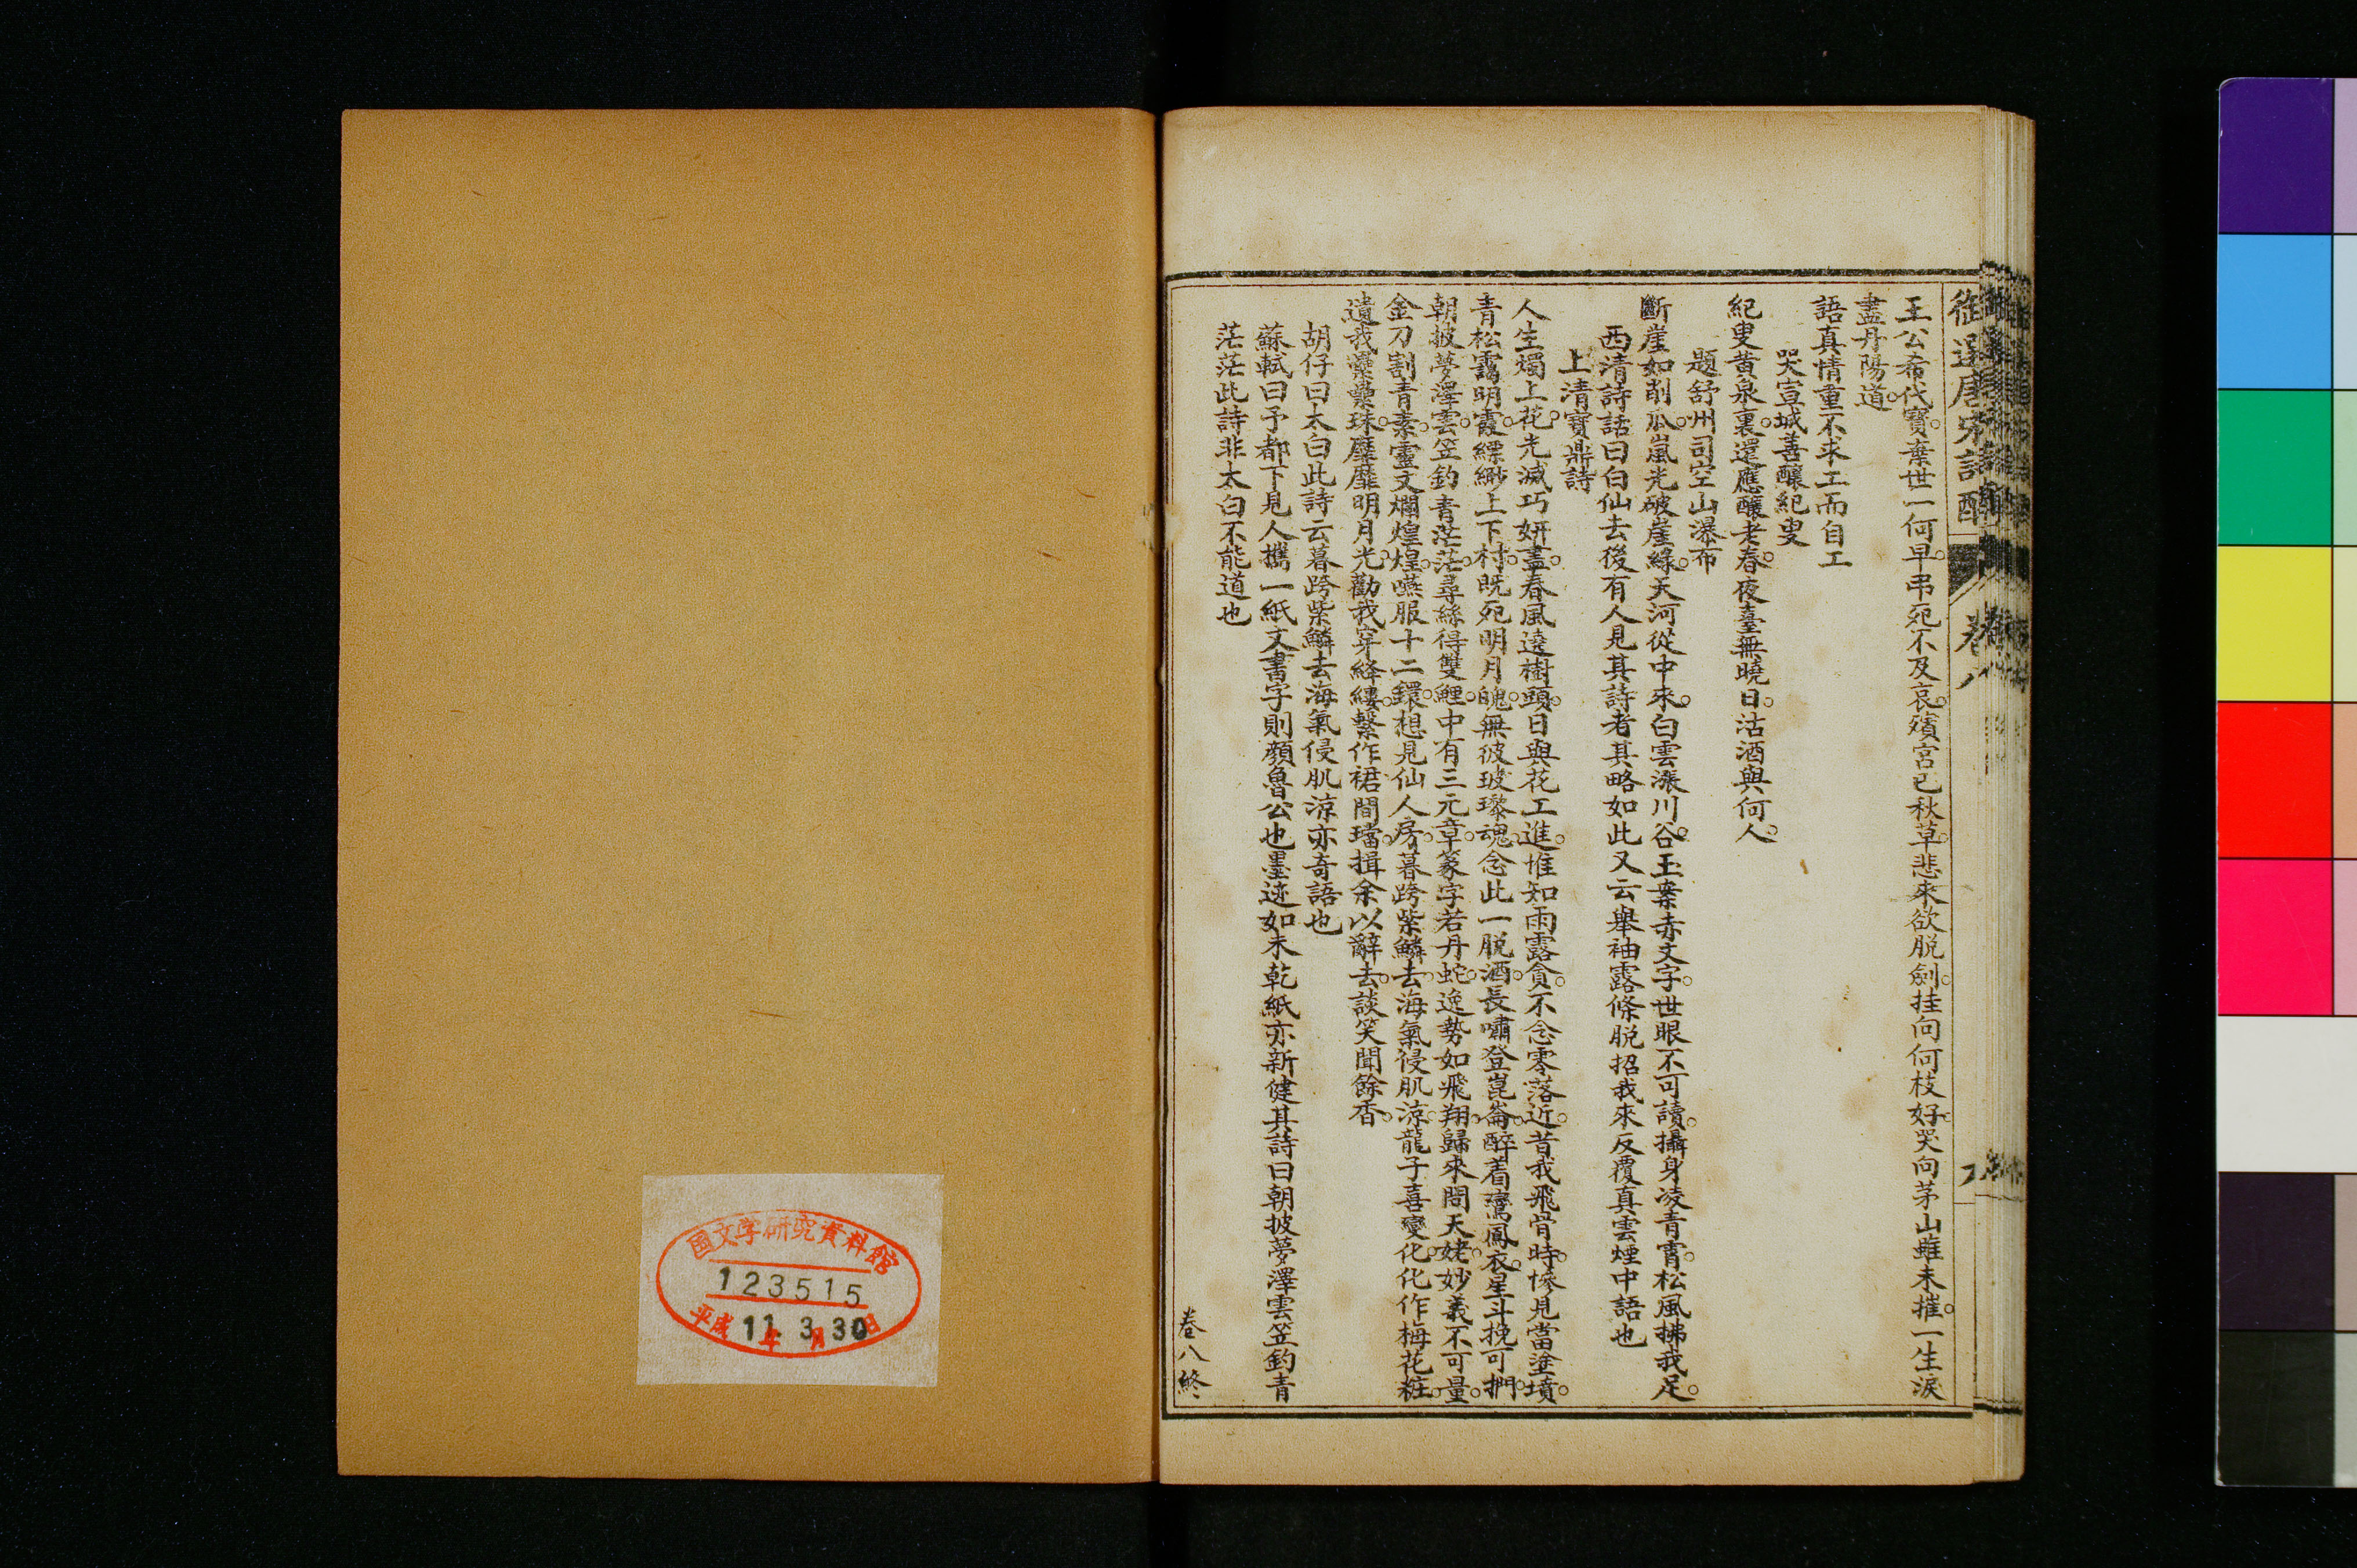 王公希代寶棄世一何早弔死不及哀殯宮已秋草悲來欲脫劍挂向何枝好哭向茅山雖未摧一生淚
盡丹陽道
語真情重不求工而自工
哭宣城善釀紀叟
紀叟黃泉裏還應釀老春夜臺無曉日沽酒與何人
題舒州司空山瀑布
斷崖如削瓜嵐光破崖綠天河從中來白雲漲川谷玉案赤文字世眼不可讀攝身凌青霄松風拂我足
西清詩話曰白仙去後有人見其詩者其略如此又云舉袖露條脫招我來反覆真雲煙中語也
上清寶鼎詩
人生燭上花光滅巧妍盡春風遶樹頭日與花工進惟知雨露貪不念零落近昔我飛骨時慘見當塗墳
青松靄明霞縹緲上下村既死明月魄無彼玻瓈魂念此一脫酒長嘯登崑崙醉着鸞鳳衣星斗挽可捫
朝披夢澤雲笠釣青茫茫尋絲得雙鯉中有三元章篆字若丹蛇逸勢如飛翔歸來問天姥妙義不可量
金刀割青素靈文爛煌煌嚥服十二鐶想見仙人房暮跨紫鱗去海氣侵肌涼龍子喜變化化作梅花粧
遺我纍纍珠靡靡明月光勸我穿絳縷繫作裙間璫揖余以辭去談笑聞餘香
胡仔曰太白此詩云暮跨紫鱗去海氣侵肌涼亦奇語也
蘇軾曰予都下見人攜一紙文書字則顏魯公也墨迹如未乾紙亦新健其詩曰朝披夢澤雲笠釣青
茫茫此詩非太白不能道也
卷八終
卷八
国文学研究資料館
123515
平成11年3月30日